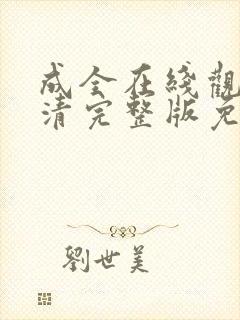 成全在綫觀
清完整版免
劉世美